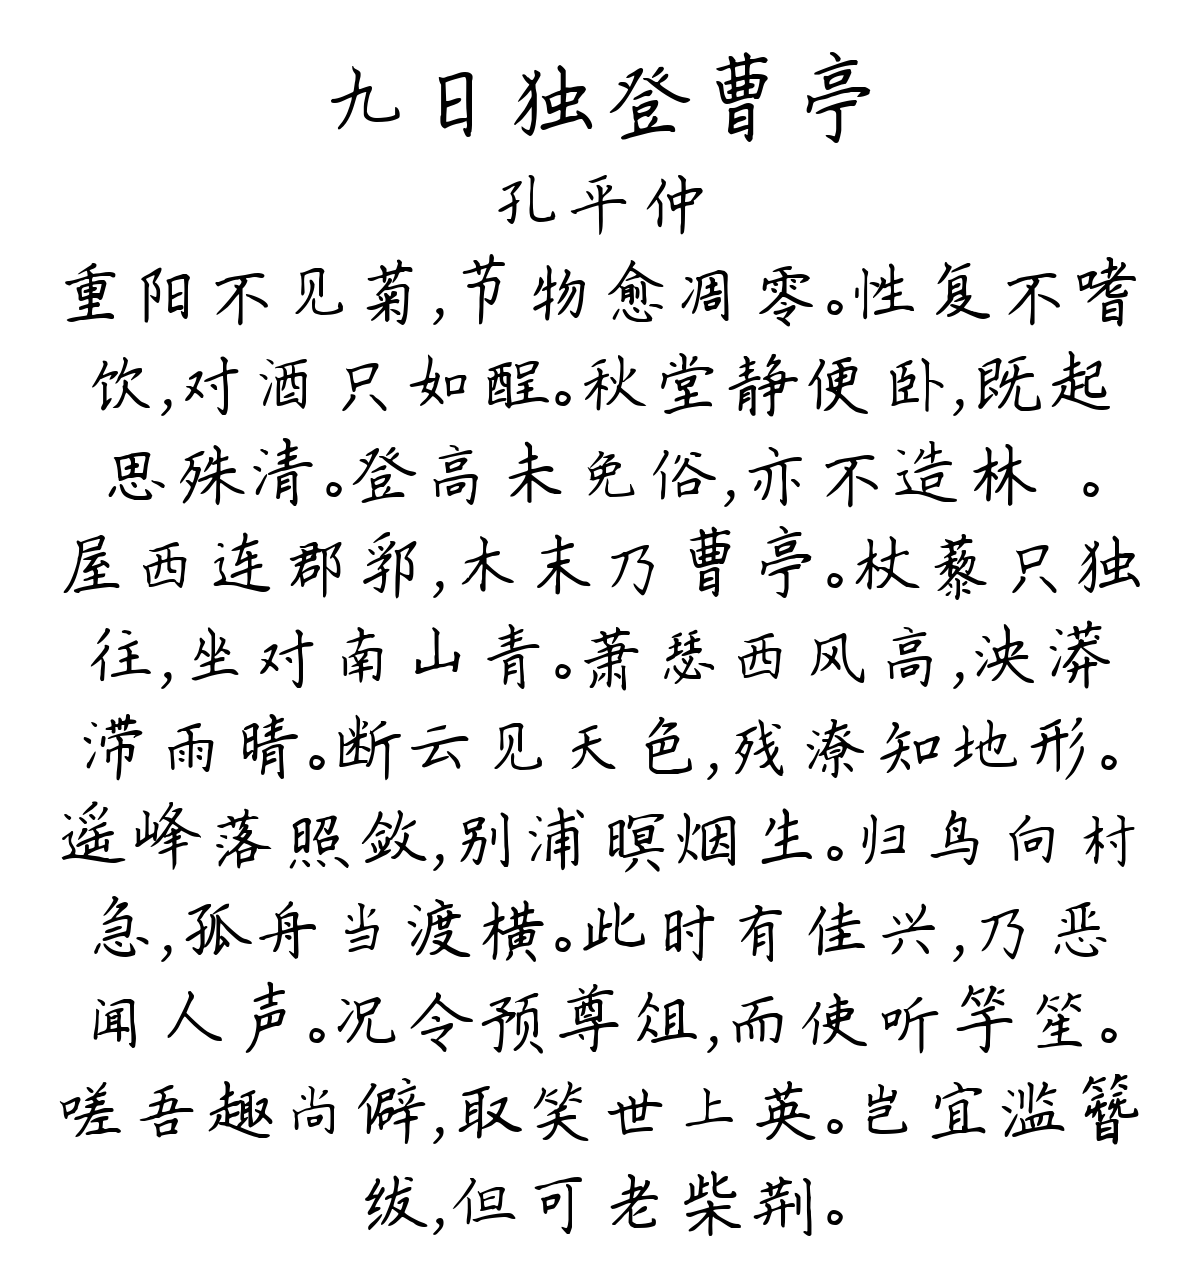 九日独登曹亭
孔平仲
重阳不见菊,节物愈凋零。性复不嗜
饮,对酒只如酲。秋堂静便卧,既起
思殊清。登高未免俗,亦不造林 。
屋西连郡郛,木末乃曹亭。杖藜只独
往,坐对南山青。萧瑟西风高,泱漭
滞雨晴。断云见天色,残潦知地形。
遥峰落照敛,别浦暝烟生。归鸟向村
急,孤舟当渡横。此时有佳兴,乃恶
闻人声。况令预尊俎,而使听竽笙。
嗟吾趣尚僻,取笑世上英。岂宜滥簪
绂,但可老柴荆。